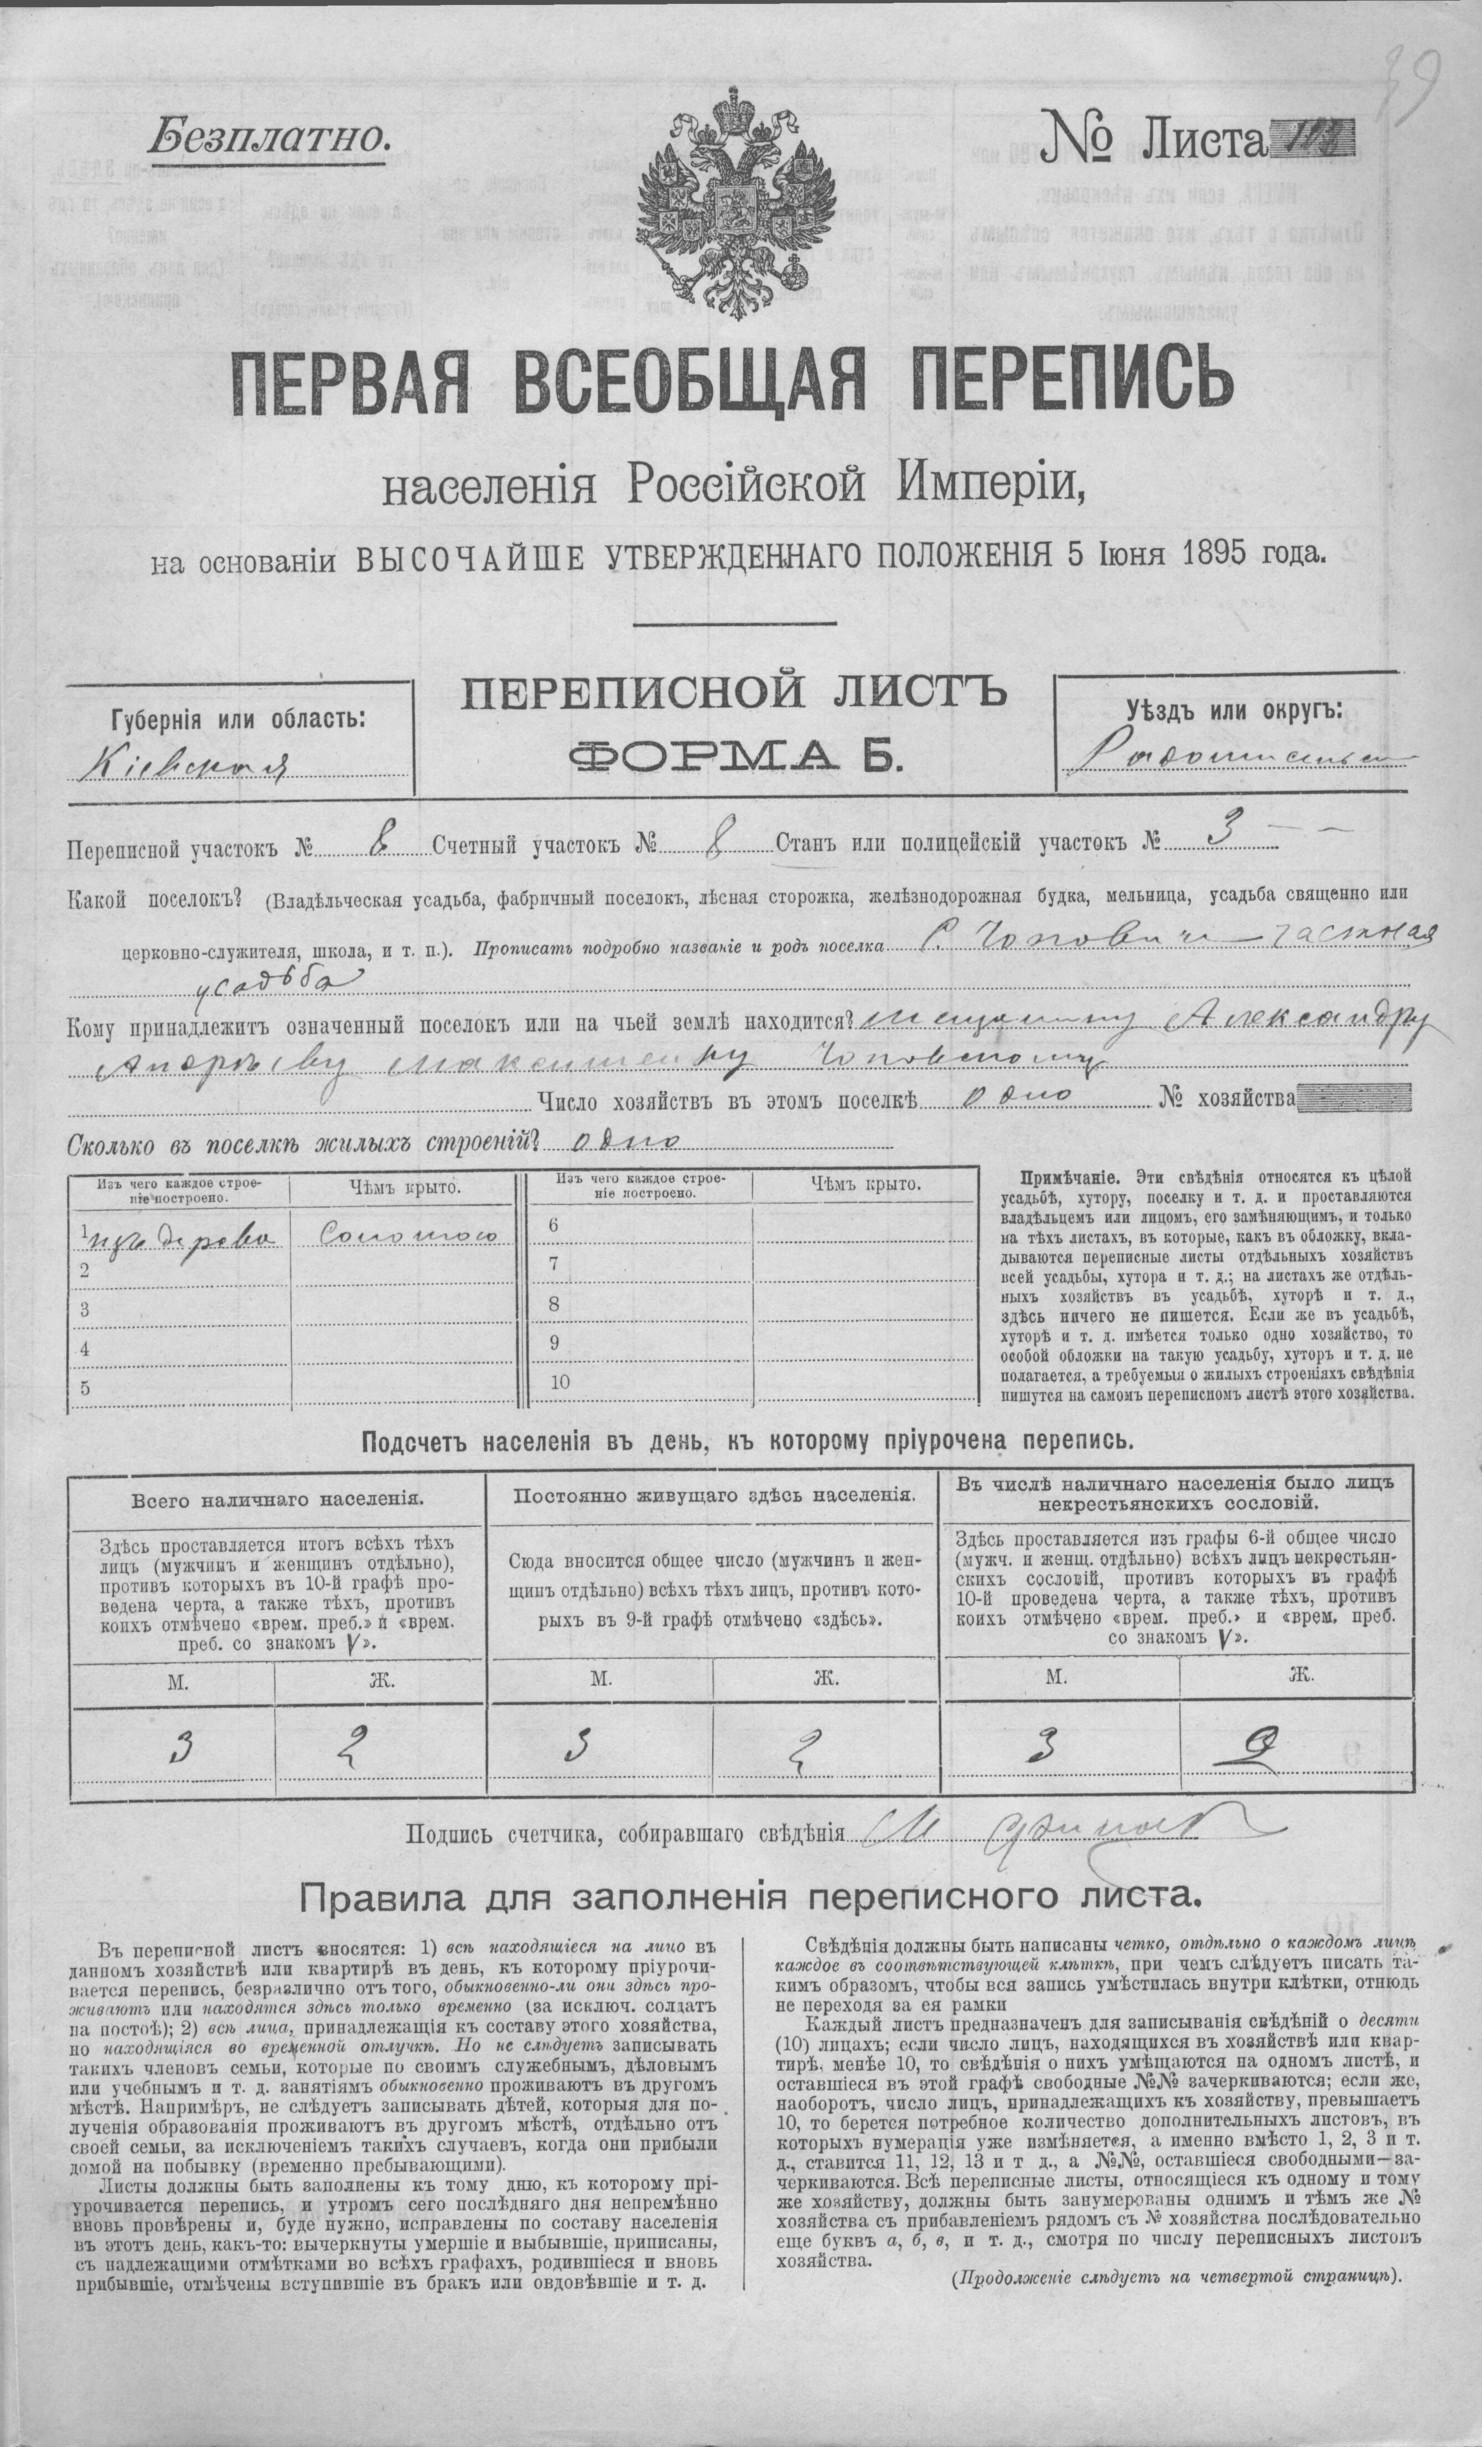 39
Безплатно.
№ Листа
ПЕРВАЯ ВСЕОБЩАЯ ПЕРЕПИСЬ
населенія Россійской Имперіи,
на основаніи ВЫСОЧАЙШЕ УТВЕРЖДЕННАГО ПОЛОЖЕНІЯ 5 Іюня 1895 года.
ПЕРЕПИСНОЙ ЛИСТЪ
ФОРМА Б.
Губернія или область:
Кіевская
Уѣздъ или округъ:
Переписной участокъ № 8 Счетный участокъ № 8 Станъ или полицейскій участокъ № 3
Какой поселокъ? (Владѣльческая усадьба, фабричный поселокъ, лѣсная сторожка, желѣзнодорожная будка, мельница, усадьба священно или
церковно-служителя, школа, и т. п.). Прописать подробно названіе и родъ поселка С. Чоповичи частная
усадьба
Кому принадлежитъ означенный поселокъ или на чьей землѣ находится? мещанину Александру
Андрѣеву Максименку Чоповскому
Число хозяйствъ въ этомъ поселкѣ одно № хозяйства
Сколько въ поселкѣ жилыхъ строеній? одно
Изъ чего каждое строе-
ніе построено.
Чѣмъ крыто.
Изъ чего каждое строе-
ніе построено.
Чѣмъ крыто.
1 изъ дерева Соломою
2
3
4
5
6
7
8
9
10
Примѣчаніе. Эти свѣдѣнія относятся къ цѣлой
усадьбѣ, хутору, поселку и т. д. и проставляются
владѣльцемъ или лицомъ, его замѣняющимъ, и только
на тѣхъ листахъ, въ которые, какъ въ обложку, вкла-
дываются переписные листы отдѣльныхъ хозяйствъ
всей усадьбы, хутора и т. д.; на листахъ же отдѣль-
ныхъ хозяйствъ въ усадьбѣ, хуторѣ и т. д.,
здѣсь ничего не пишется. Если же въ усадьбѣ,
хуторѣ и т. д. имѣется только одно хозяйство, то
особой обложки на такую усадьбу, хуторъ и т. д. не
полагается, а требуемыя о жилыхъ строеніяхъ свѣдѣнія
пишутся на самомъ переписномъ листѣ этого хозяйства.
Подсчетъ населенія въ день, къ которому пріурочена перепись.
Всего наличнаго населенія.
Здѣсь проставляется итогъ всѣхъ тѣхъ
лицъ (мужчинъ и женщинъ отдѣльно),
противъ которыхъ въ 10-й графѣ про-
ведена черта, а также тѣхъ, противъ
коихъ отмѣчено «врем. преб.» и «врем.
преб. со знакомъ V».
М. Ж.
3 2
Постоянно живущаго здѣсь населенія.
Сюда вносится общее число (мужчинъ и жен-
щинъ отдѣльно) всѣхъ тѣхъ лицъ, противъ кото-
рыхъ въ 9-й графѣ отмѣчено «здѣсь».
М. Ж.
3 2
Въ числѣ наличнаго населенія было лицъ
некрестьянскихъ сословій.
Здѣсь проставляется изъ графы 6-й общее число
(мужч. и женщ. отдѣльно) всѣхъ лицъ некрестьян-
скихъ сословій, противъ которыхъ въ графѣ
10-й проведена черта, а также тѣхъ, противъ
коихъ отмѣчено «врем. преб.» и «врем. преб.
со знакомъ V».
М. Ж.
3 2
Подпись счетчика, собиравшаго свѣдѣнія
Правила для заполненія переписного листа.
Въ переписной листъ вносятся: 1) всѣ находящіеся на лицо въ
данномъ хозяйствѣ или квартирѣ въ день, къ которому пріурочи-
вается перепись, безразлично отъ того, обыкновенно-ли они здѣсь про-
живаютъ или находятся здѣсь только временно (за исключ. солдатъ
на постоѣ); 2) всѣ лица, принадлежащія къ составу этого хозяйства,
но находящіяся во временной отлучкѣ. Но не слѣдуетъ записывать
такихъ членовъ семьи, которые по своимъ служебнымъ, дѣловымъ
или учебнымъ и т. д. занятіямъ обыкновенно проживаютъ въ другомъ
мѣстѣ. Напримѣръ, не слѣдуетъ записывать дѣтей, которыя для по-
лученія образованія проживаютъ въ другомъ мѣстѣ, отдѣльно отъ
своей семьи, за исключеніемъ такихъ случаевъ, когда они прибыли
домой на побывку (временно пребывающими).
Листы должны быть заполнены къ тому дню, къ которому прі-
урочивается перепись, и утромъ сего послѣдняго дня непремѣнно
вновь провѣрены и, буде нужно, исправлены по составу населенія
въ этотъ день, какъ-то: вычеркнуты умершіе и выбывшіе, приписаны,
съ надлежащими отмѣтками во всѣхъ графахъ, родившіеся и вновь
прибывшіе, отмѣчены вступившіе въ бракъ или овдовѣвшіе и т. д.
Свѣдѣнія должны быть написаны четко, отдѣльно о каждомъ лицѣ,
каждое въ соотвѣтствующей клѣткѣ, при чемъ слѣдуетъ писать та-
кимъ образомъ, чтобы вся запись умѣстилась внутри клѣтки, отнюдь
не переходя за ея рамки
Каждый листъ предназначенъ для записыванія свѣдѣній о десяти
(10) лицахъ; если число лицъ, находящихся въ хозяйствѣ или квар-
тирѣ, менѣе 10, то свѣдѣнія о нихъ умѣщаются на одномъ листѣ, и
оставшіеся въ этой графѣ свободные №№ зачеркиваются; если же,
наоборотъ, число лицъ, принадлежащихъ къ хозяйству, превышаетъ
10, то берется потребное количество дополнительныхъ листовъ, въ
которыхъ нумерація уже измѣняется, а именно вмѣсто 1, 2, 3 и т.
д., ставится 11, 12, 13 и т д., а №№, оставшіеся свободными—за-
черкиваются. Всѣ переписные листы, относящіеся къ одному и тому
же хозяйству, должны быть занумерованы однимъ и тѣмъ же №
хозяйства съ прибавленіемъ рядомъ съ № хозяйства послѣдовательно
еще буквъ а, б, в, и т. д., смотря по числу переписныхъ листовъ
хозяйства.
(Продолженіе слѣдуетъ на четвертой страницѣ).